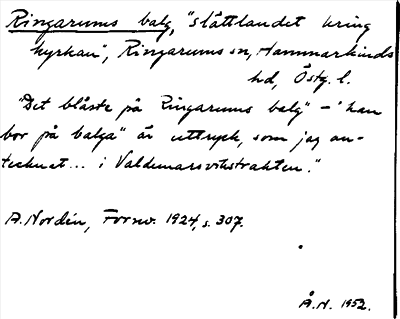 Ringarums balg, "slåttlandet kring
kyrkan", Ringarums sn, Hammarkinds
hd, Östg. l.
"Det blåste på Ringarums balg" – 'han
bor på balga" är uttryck, som jag an-
tecknat... i Valdemarsvikstrakten."
A. Nordén, Fornv. 1924, s. 307.
Å.N. 1952.